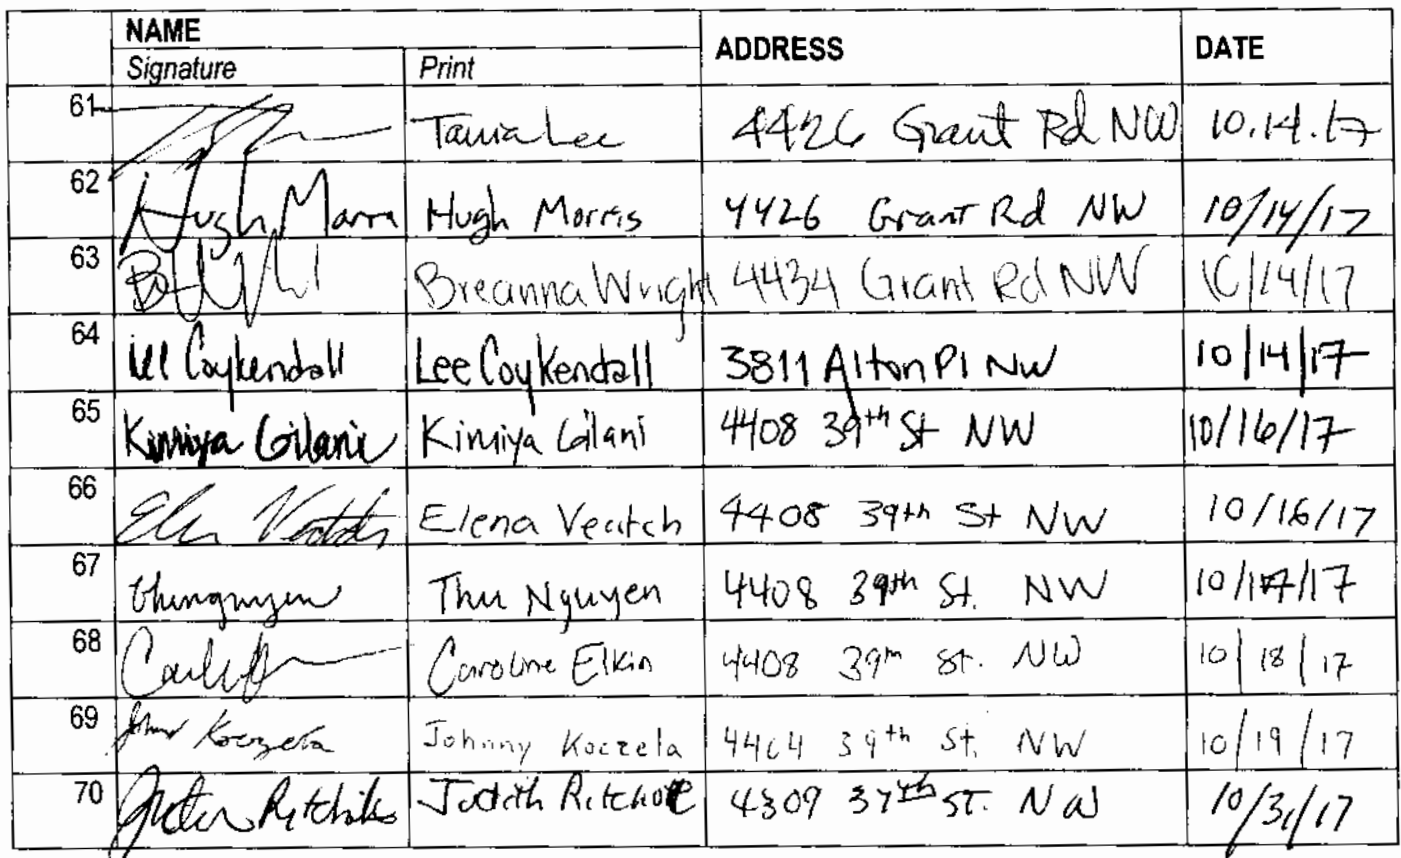 NAME ADDRESS DATE
Signature Print
61 Tania Lee 4426 Grant Rd NW 10.14.17
62 Hugh Morris Hugh Morris 4426 Grant Rd NW 10/14/17
63 Breanna Wright 4434 Grant Rd NW 10/14/17
64 Lee Coykendall Lee Coykendall 3811 Alton Pl NW 10/14/17
65 Kimiya Gilani Kimiya Gilani 4408 39th St NW 10/16/17
66 Elena Veatch 4408 39th St NW 10/16/17
67 thunguyen Thu Nguyen 4408 39th St. NW 10/17/17
68 Caroline Elkin 4408 39th St. NW 10/18/17
69 Koczela Johnny Koczela 4404 39th St. NW 10/19/17
70 Judith 4309 37th ST. NW 10/31/17